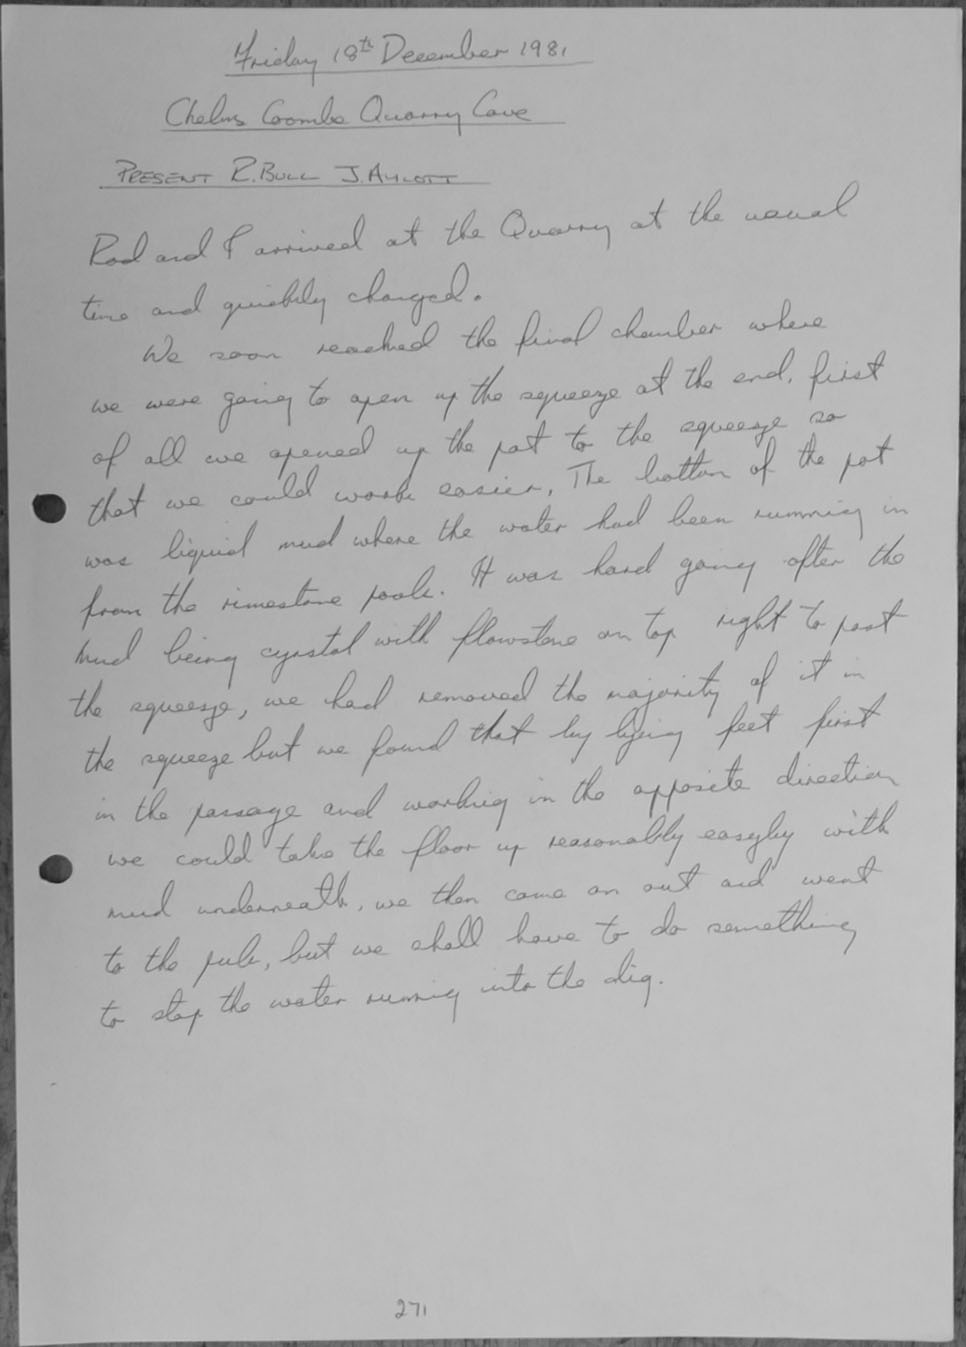 Friday 18th December 1981
Chelms Coombe Quarry Cave
PRESENT R. BULL J. AYLOTT
Rod and I arrived at the Quarry at the usual
time and quickly changed.
We soon reached the final chamber where
we were going to open up the squeeze at the end, first
of all we opened up the pot to the squeeze so
that we could work easier, The bottom of the pot
was liquid mud where the water had been running in
from the rimestone pools. It was hard going after the
mud being cyrstal with flowstone on top right to past
the squeeze, we had removed the majority of it in
the squeeze but we found that by lying feet first
in the passage and working in the opposite direction
we could take the floor up reasonably easyley with
mud underneath, we then came on out and went
to the pub, but we shall have to do something
to stop the water running into the dig.
271